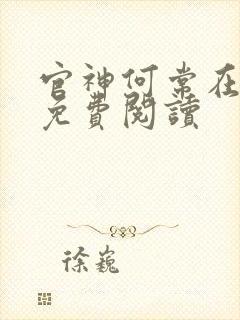 官神何常在
免費閱讀
徐巍